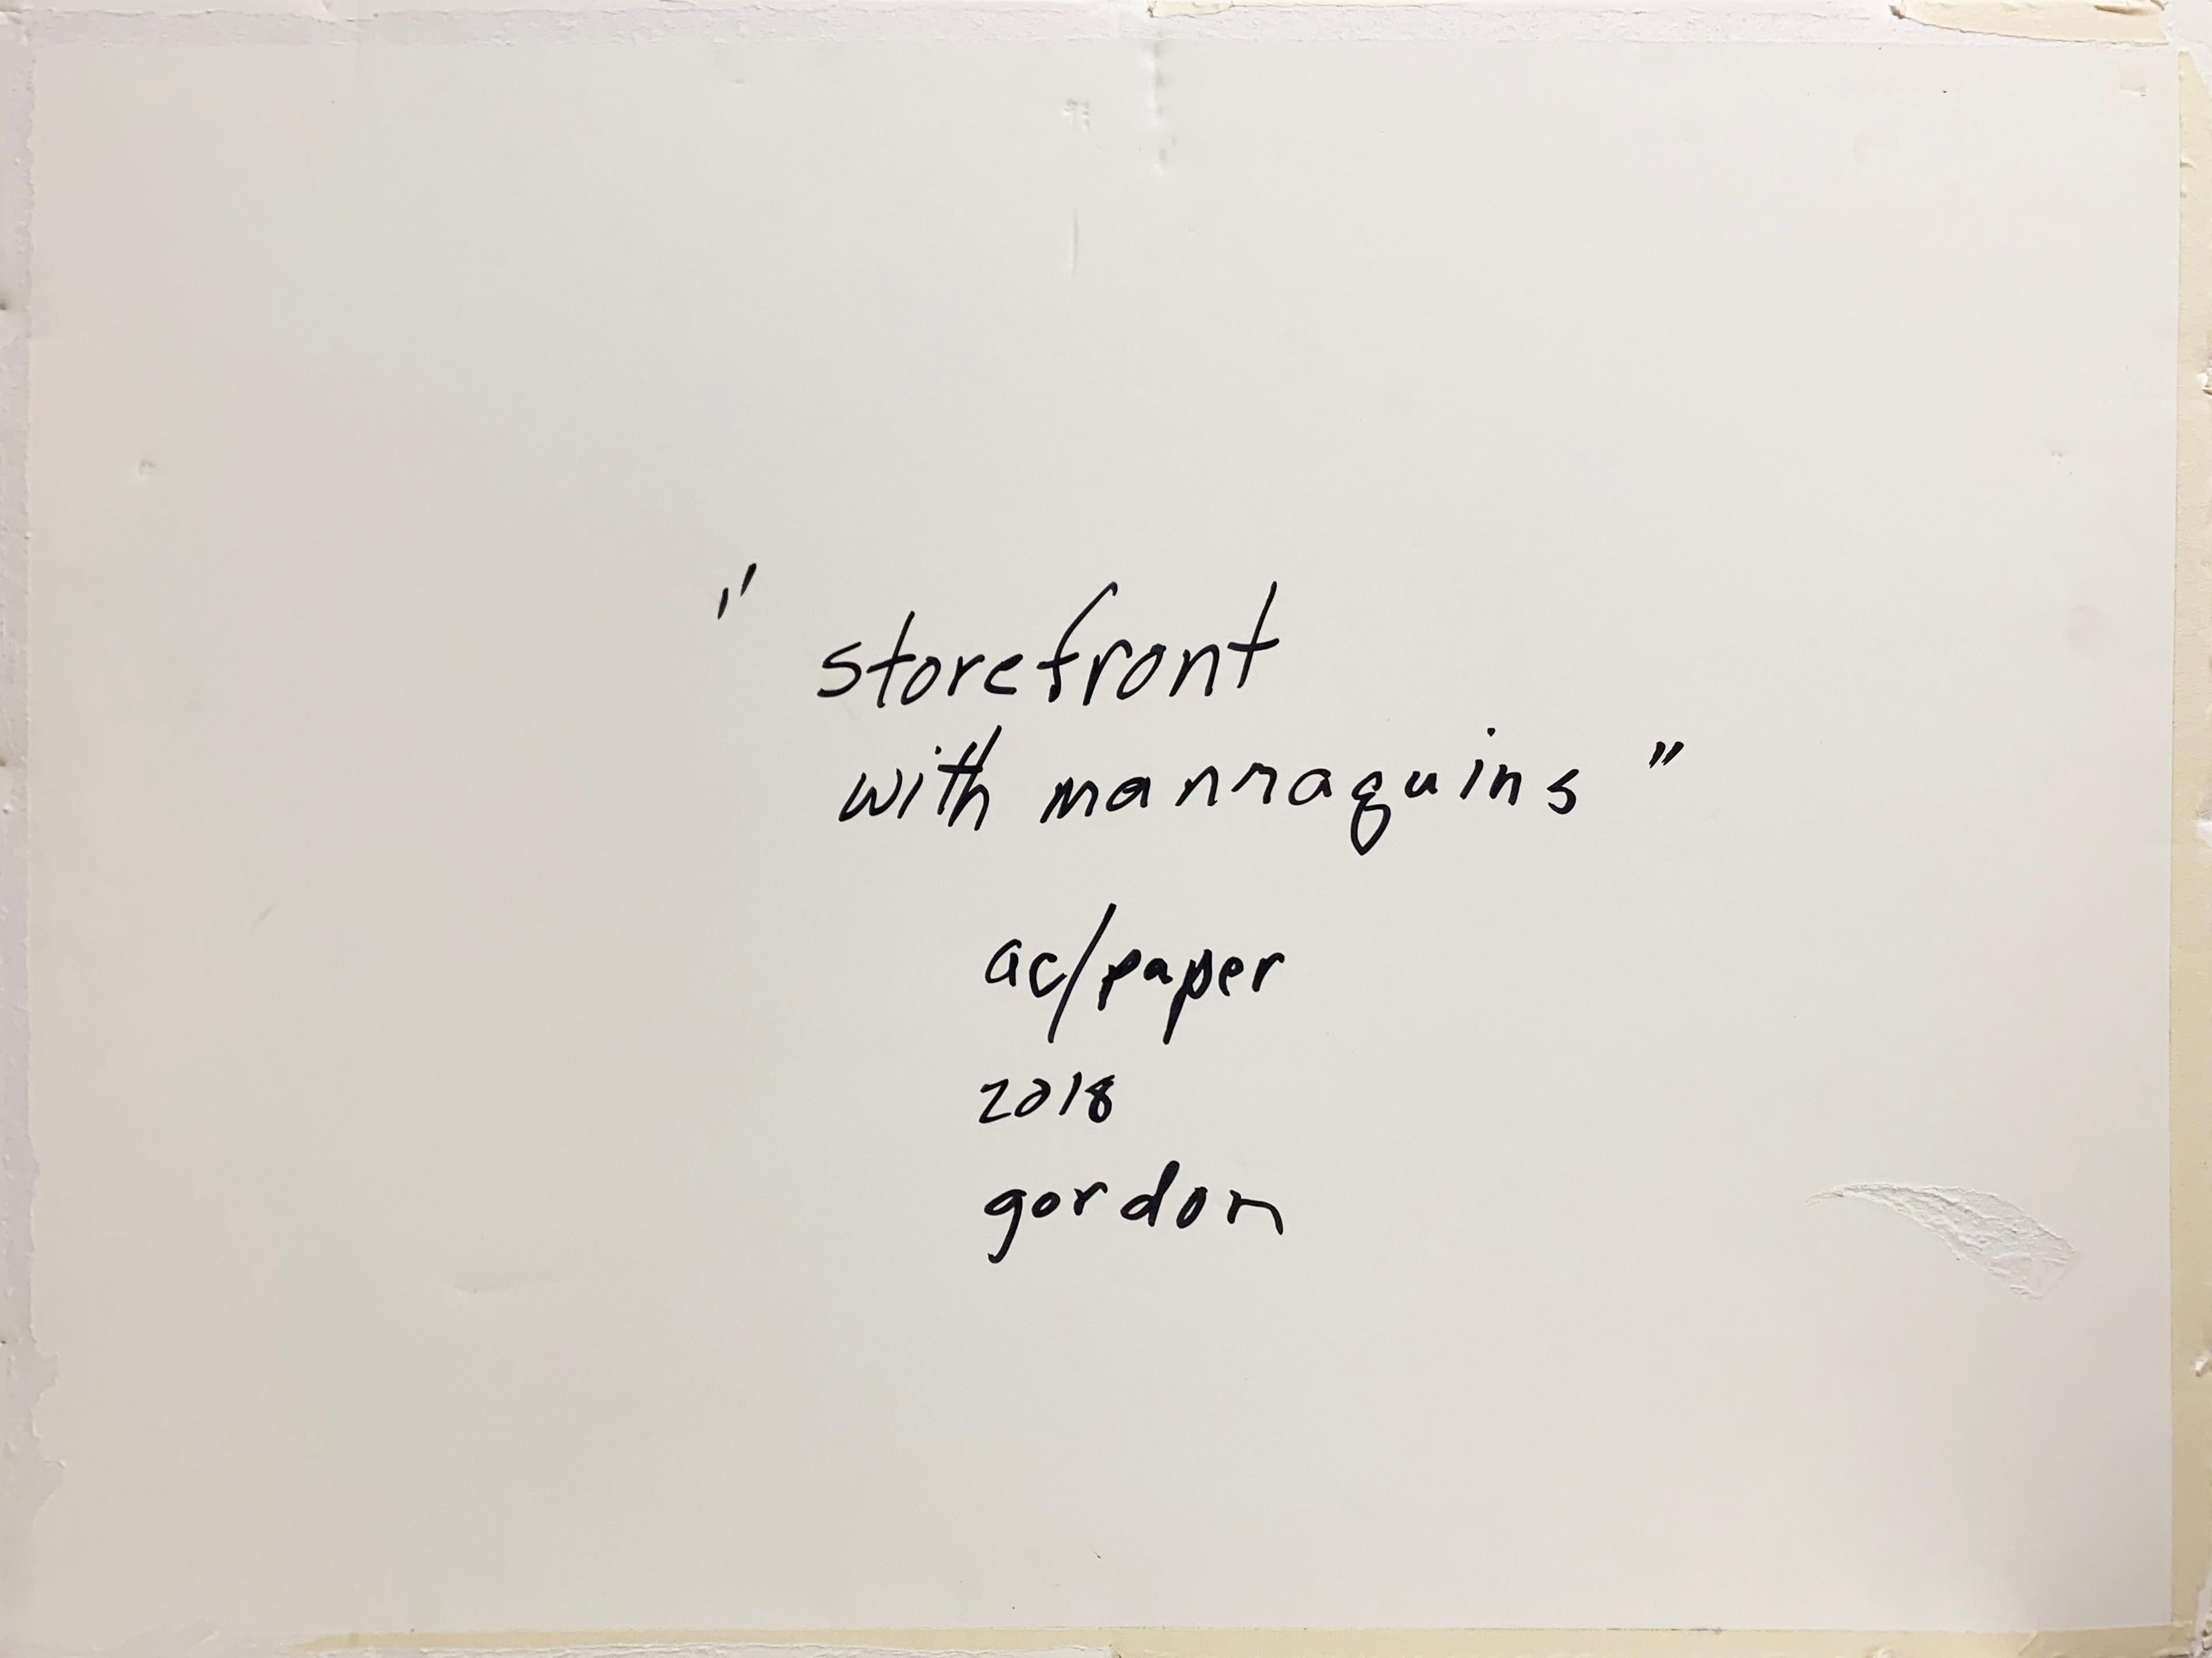 "storefront
with mannaquins"
ac/paper
2018
gordon